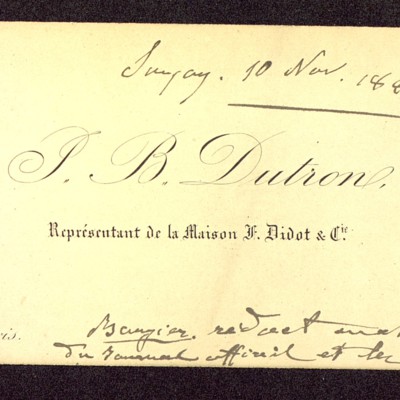 10 Nov. 188
J. B. Dutron.
Représentant de la Maison F. Didot & Cie.
is.
redact
du Journal officiel et